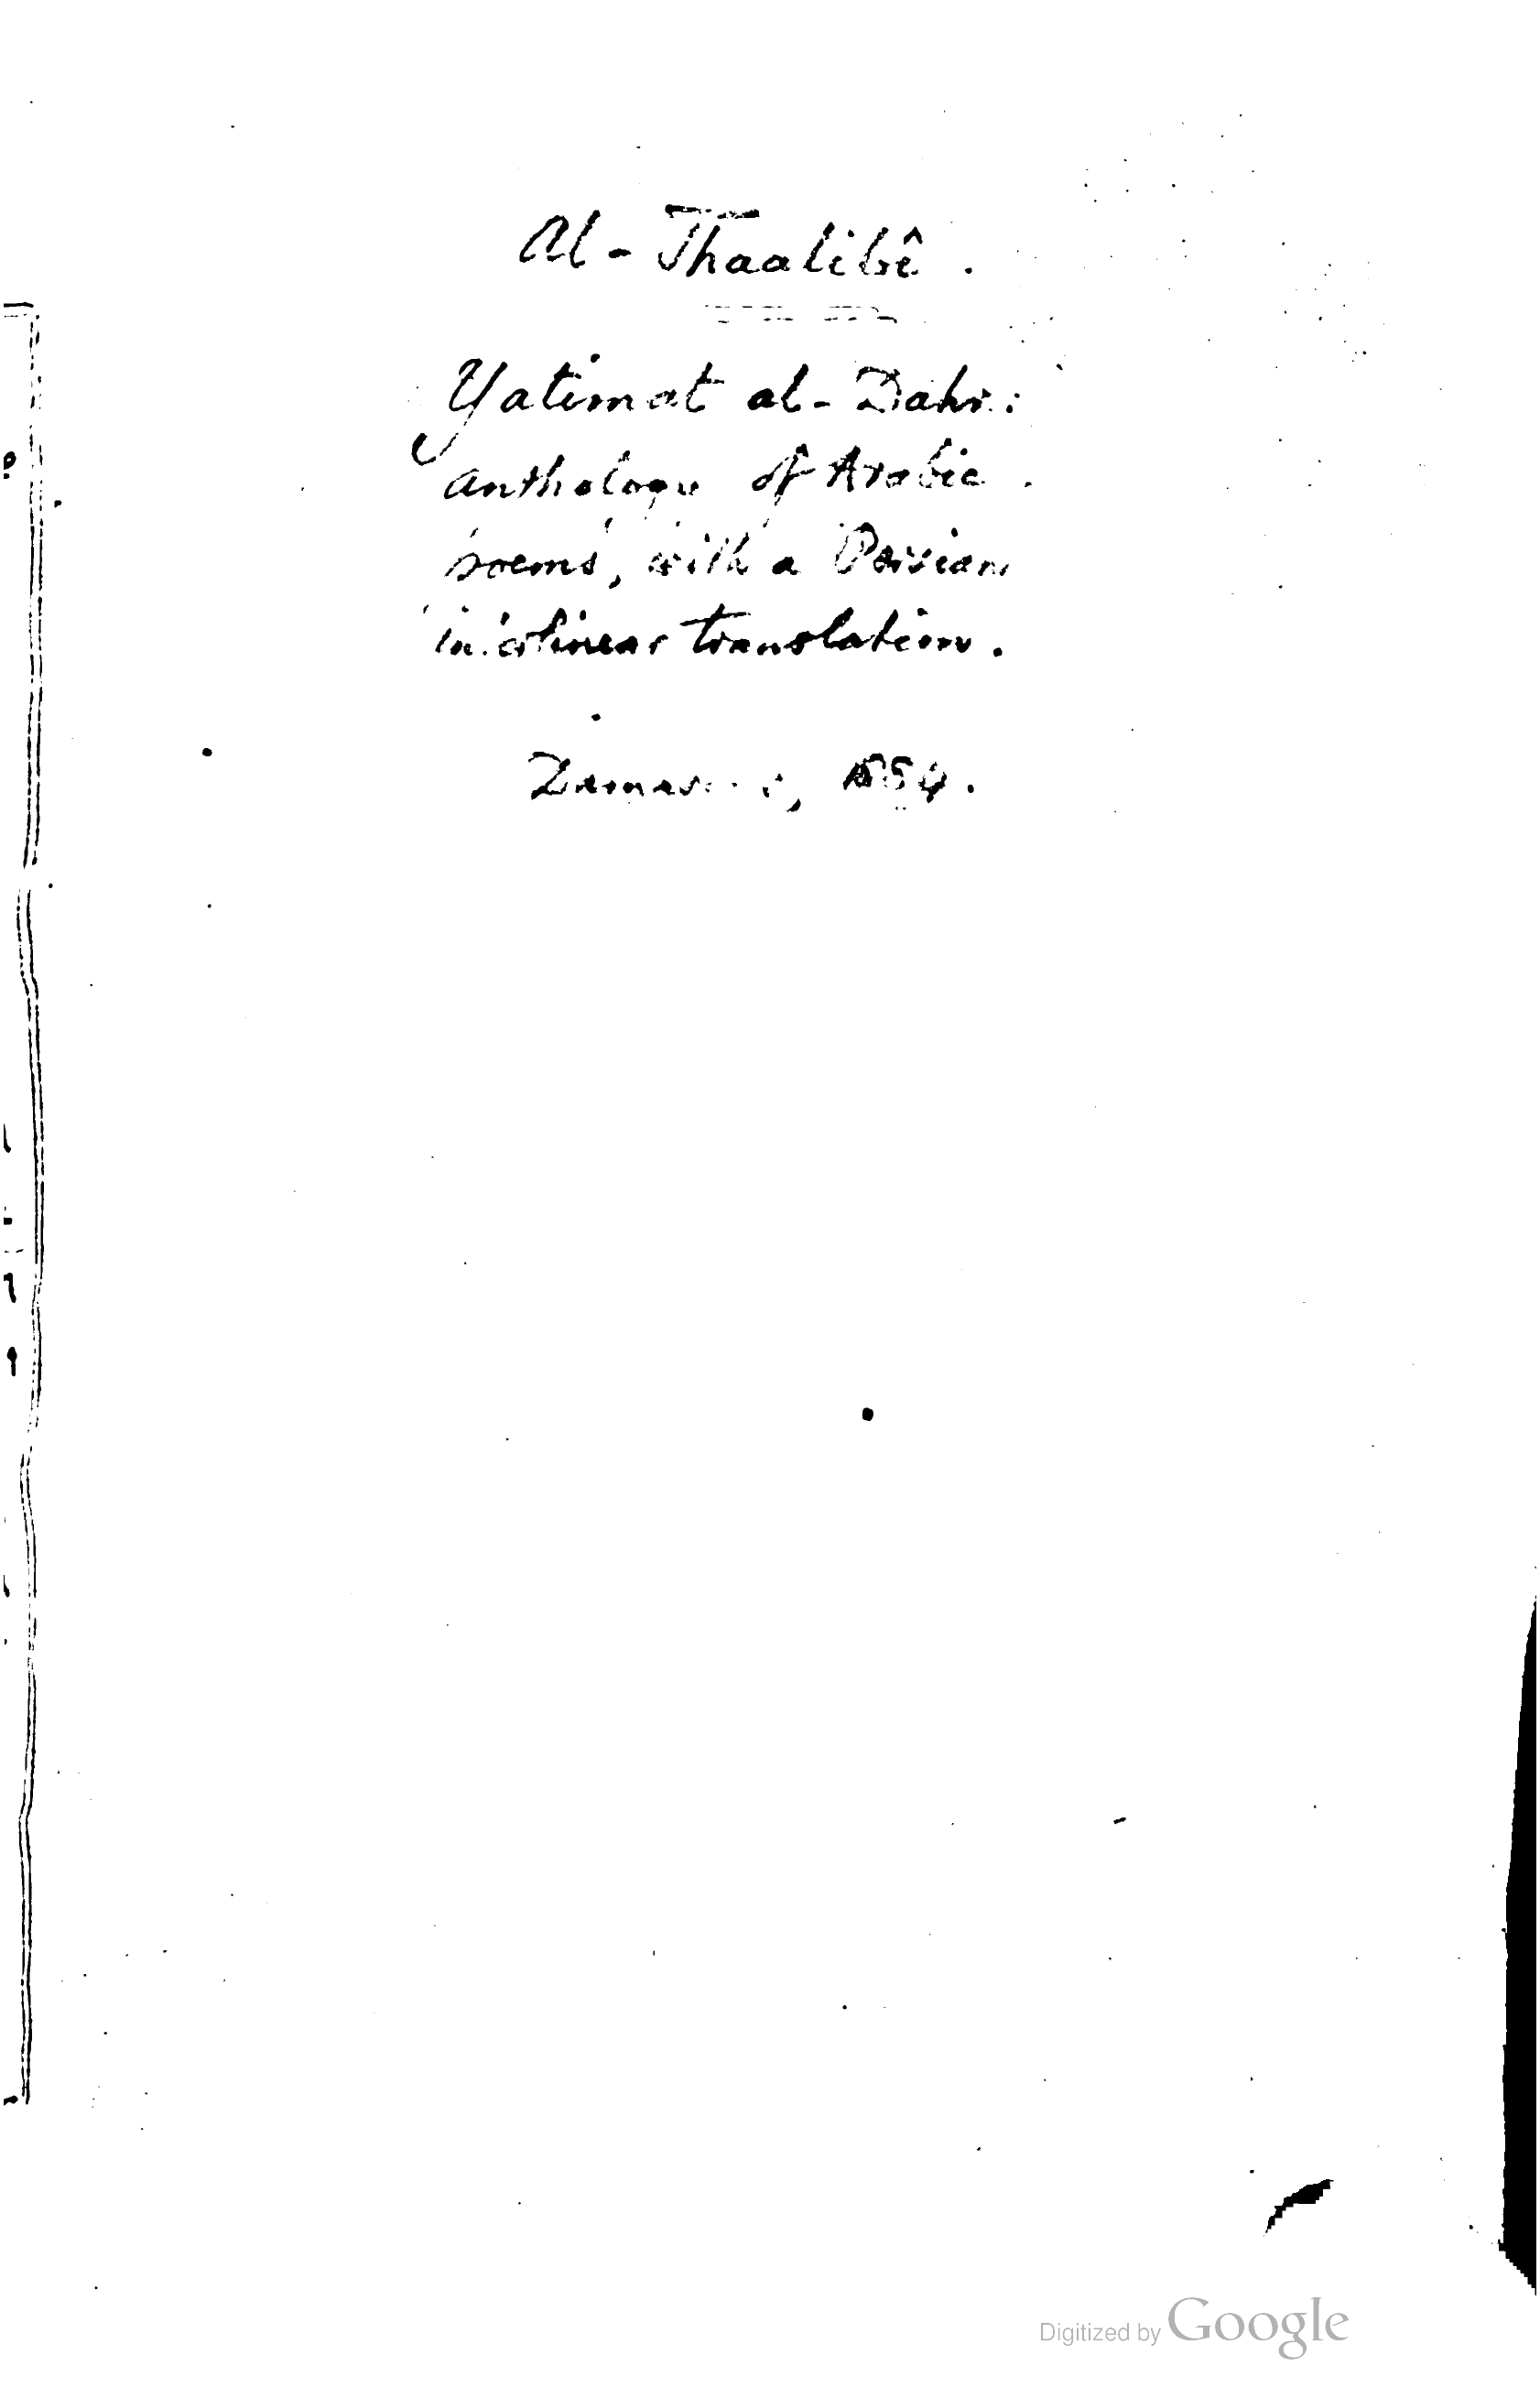 Al-Thaalibê.
Yatimat al-Dahr:
anthology of Arabic
poems, with a Persian
interlinear translation.
1884.
Digitized by Google